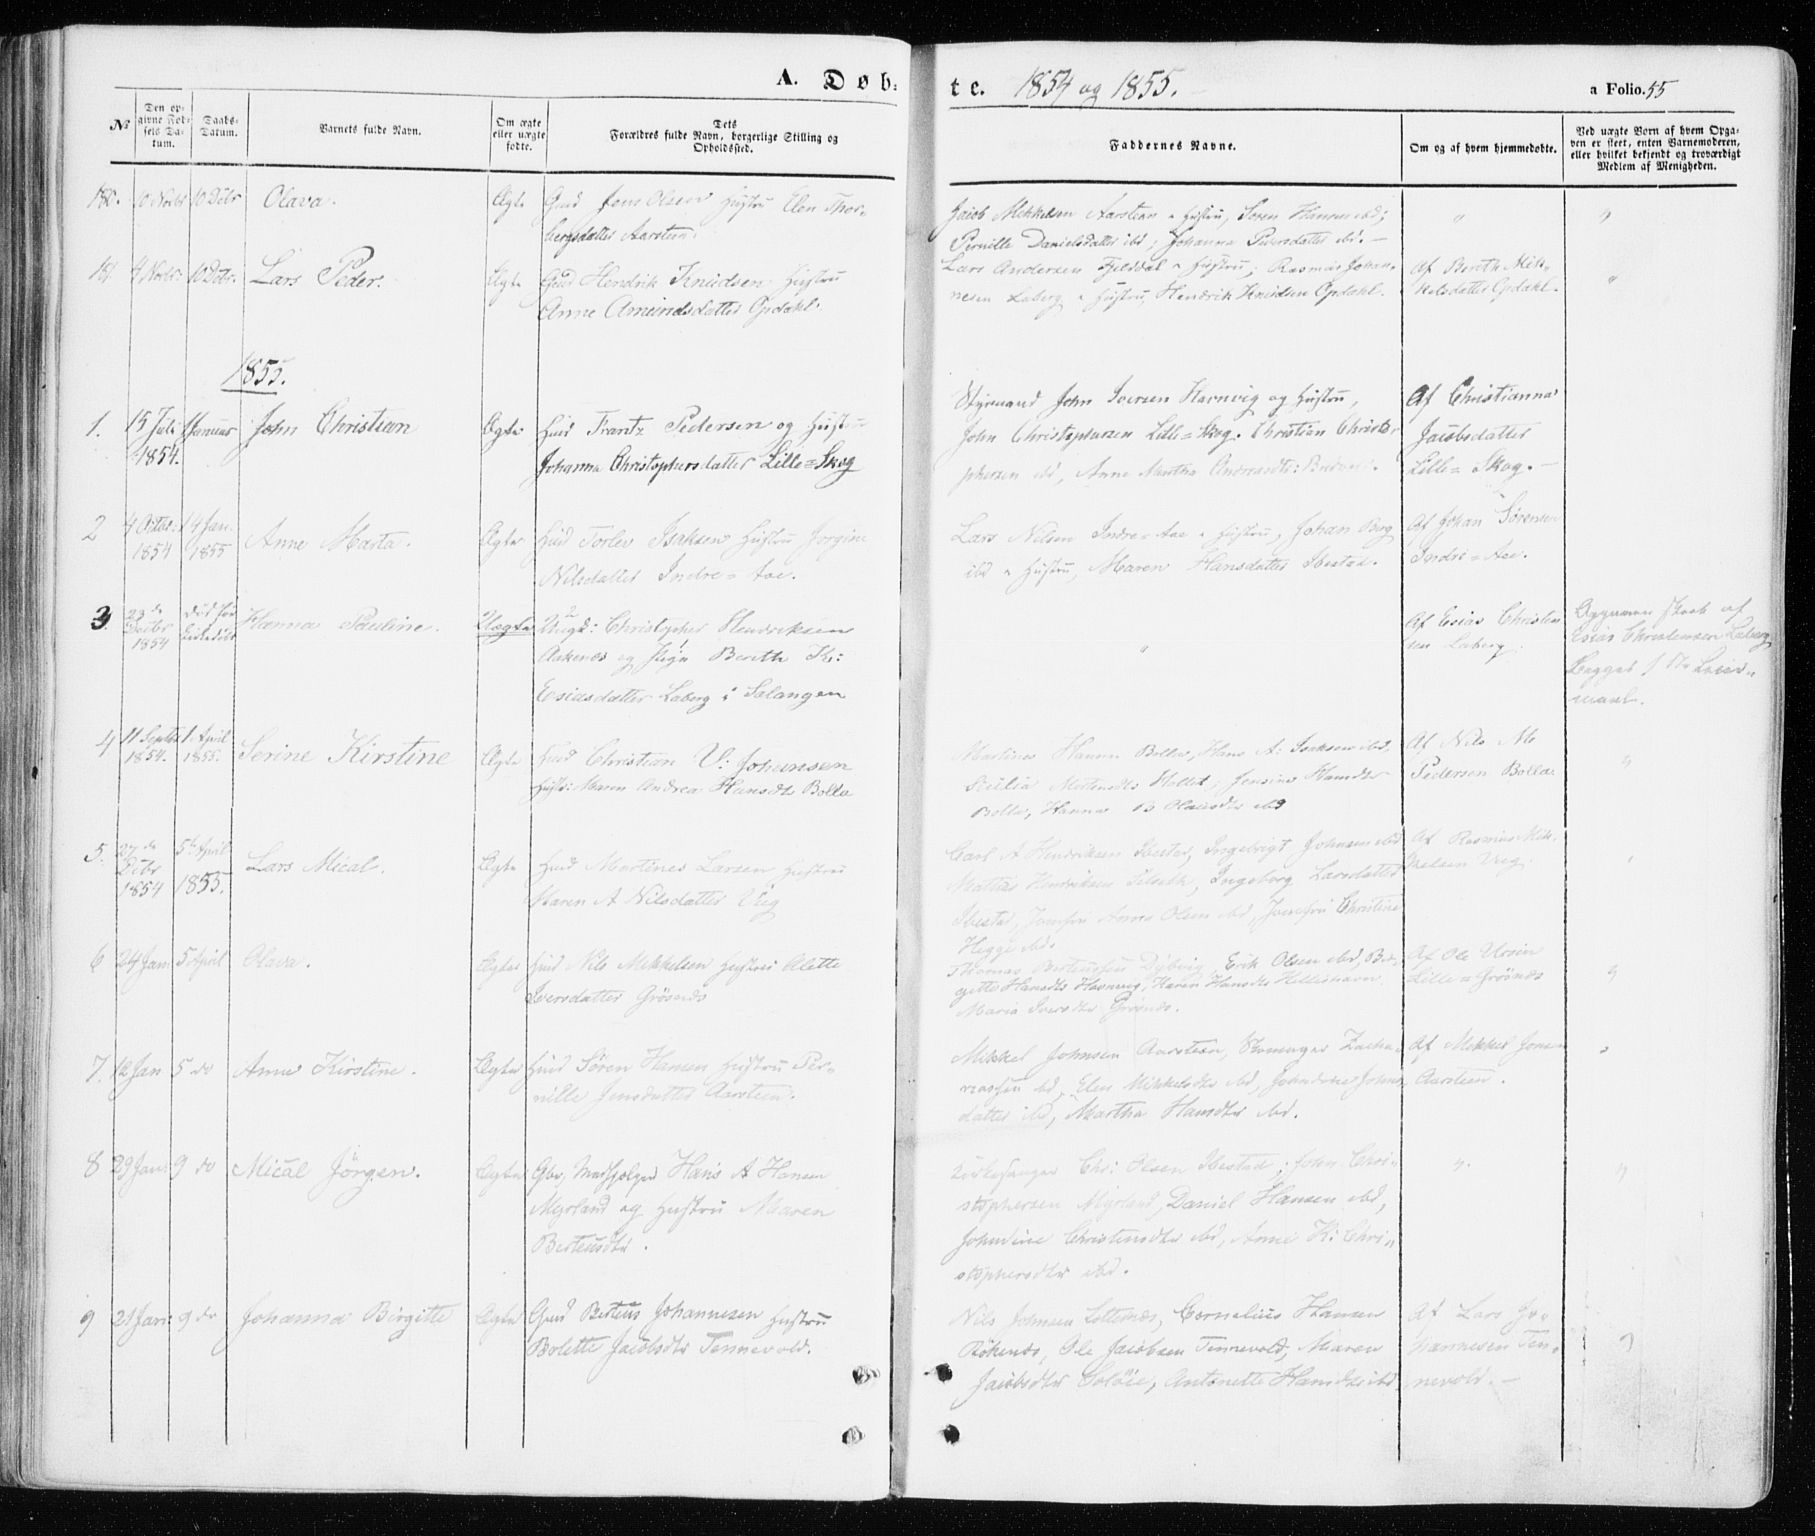 A. Døb-
te. 1854 og 1855.
a Folio. 55
№
Den op-
givne Fød-
sels Da-
tum.
Daabs-
Datum.
Barnets fulde Navn.
Om ægte
eller uægte
fødte.
Dets
Forældres fulde Navn, borgerlige Stilling og
Opholdssted.
Faddernes Navne.
Om og af hvem hjemmedøbte.
Ved uægte Børn af hvem Opga-
ven er skeet, enten Barnemoderen,
eller hvilket bekjendt og troværdigt
Medlem af Menigheden.
180. 10 Novbr 10 Dcbr Olava. Ægte Gmd Jens Olsen Hustru Elen Thor-
bergsdatter Aarsteen.
Jacob Mikkelsen Aarsteen Hustru, Søren Hansen ibd;
Pernille Danielsdatter ibd; Johanna Pedersdatter ibd. —
181 4 Novbr. 10 Dcbr. Lars Peder. Ægte Gmd Hendrik Knudsen Hustru
Anne Amundsdatter Opdahl.
Lars Andersen Fjelddal Hustru; Rasmus Johan-
nesen Laberg Hustru, Hendrik Knudsen Opdahl.
Af Berith Mik-
kelsdatter Opdahl.
1855.
1. 15 Juli 1854. 1 Januar John Christian Ægte Huud Frantz Pedersen og Hustru
Johanna Christophersdatter Lille=Skog
Styrmand John Iversen Havnvig og Hustru,
John Christophersen Lille=Skog. Christian Christo-
phersen ibd, Anne Martha
Af Christianna
Jacobsdatter
Lille=Skog. —
2 4 Octbr. 1854 14 Jan. 1855 Anne Marta. Ægte Huud Torlev Isaksen Hustru Jorgine
Nilsdatter Indre=Aae.
Lars Nilsen Indre=Aae Hustru, Johan Berg
ibd Hustru, Maren Hansdatter Ibestad.
Af Johan Sørensen
Indre=Aae.
3. 23de 1854 død før Hanna Pauline. Uægte Ungk: Christopher Hendriksen
Aakenes og Pige Berethe K:
Esiasdatter Laberg i Salangen
Af Esias Christen-
sen Laberg.
af
Esias Christensen Laberg
Begges
4 11 Septbr 1854. 1 April 1855. Serine Kirstine Ægte Huud Christian V: Johansen
Hustr: Maren Andrea Hansdtr Bolla
Martines Hansen Bolla, Hans A: Isaksen ibd,
Hansdtr
Bolla, Hanna B Olausdtr ibd
Af Nils M
Pedersen Bolla.
5. 27de Dcbr 1854 5te April 1855. Lars Mical. Ægte Huud Martines Larsen Hustru
Karen A Nilsdatter Vig
Carl A Hendriksen Ibestad, Ingebrigt Johnsen ibd
Mathias Hendriksen Ingeborg Larsdatter
Ibestad, Jomfru Anna Olsen ibd, Jomfru Christine
Hegge ibd.
Af Rasmus Mik-
kelsen Vig.
6 24 Jan 5 April Olava. Ægte Huud Nils Mikkelsen Hustru Alette
Iversdatter Grøsnes
Thomas Berteussen Dybvig, Erik Olsen ibd, Bir-
gitte Hansdtr Havnvig, Karen Hansdtr
Maria Iversdtr Grøsnes.
Af Ole Ursin
Lille=Grøsnes
7. 12 Jan 5 do Anne Kirstine. Ægte Huud Søren Hansen Hustru Per-
nille Jensdatter Aarsteen.
Mikkel Johnsen Aarsteen, Zacha-
riassen ibd, Elen Mikkelsdtr ibd, Johns
datter ibd, Martha Hansdtr ibd.
Af Mikkel Jensen
Aarsteen.
8 29 Jan: 9 do Mical Jörgen. Ægte Gbr, Medhjælper Hans A Hansen
Myrland og Hustru Maren
Berteusdtr.
Kirkesanger Chr: Olsen Ibestad; John Chri-
stophersen Myrland, Daniel Hansen ibd,
Christensdtr ibd, Anne K: Chri-
stophersdtr ibd.
9 21 Jan: 9 do Johanna Birgitte Ægte Gmd Berteus Johannesen Hustru
Bolette Jacobsdtr Tennevold.
Nils Johnsen Cornelius Hansen
Røkenes, Ole Jacobsen Tennevold, Maren
Jacobsdtr Antonette Hansdtr ibd
Af Lars Jo-
hannesen Ten-
nevold. —